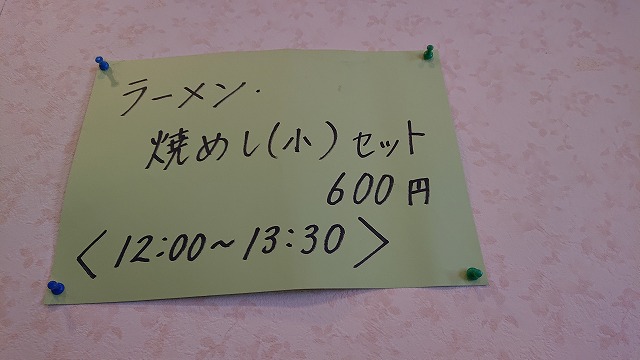 ラーメン・
焼めし(小)セット
600円
〈12:00~13:30〉